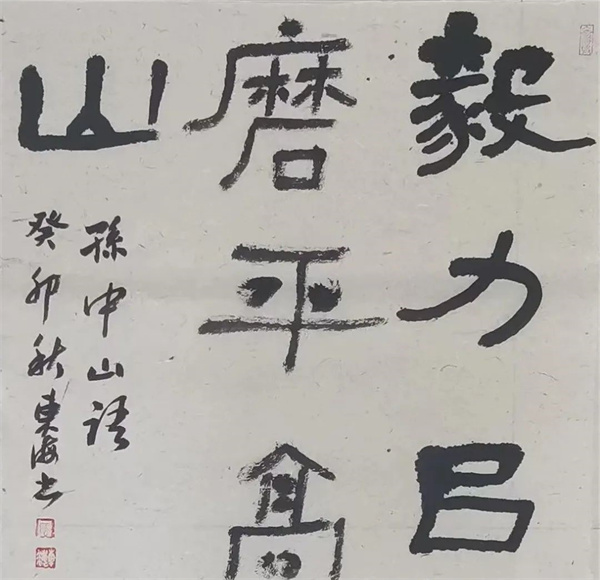 毅力㠯
磨平高
山
孫中山語
癸卯秋東海書